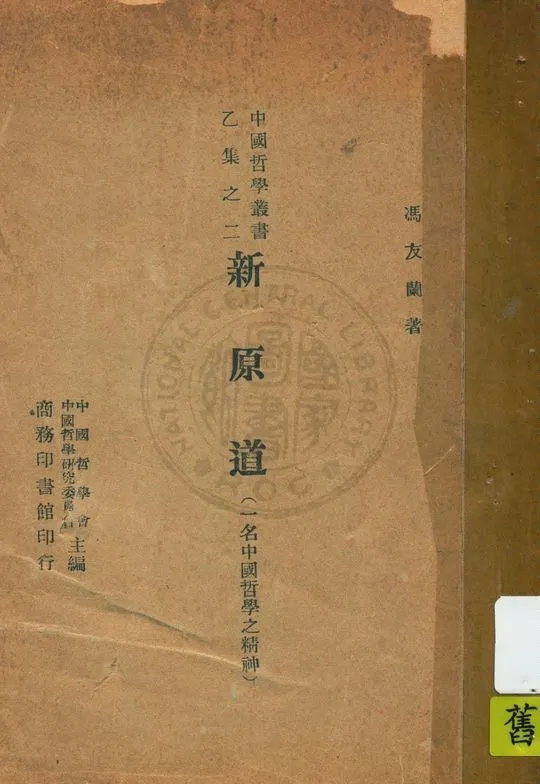 馮友蘭著
中國哲學叢書
乙集之二
新原道
(一名中國哲學之精神)
中國哲學會
中國哲學研究委員會
主編
商務印書館印行
NATIONAL CENTRAL LIBRARY
國家圖書館
舊